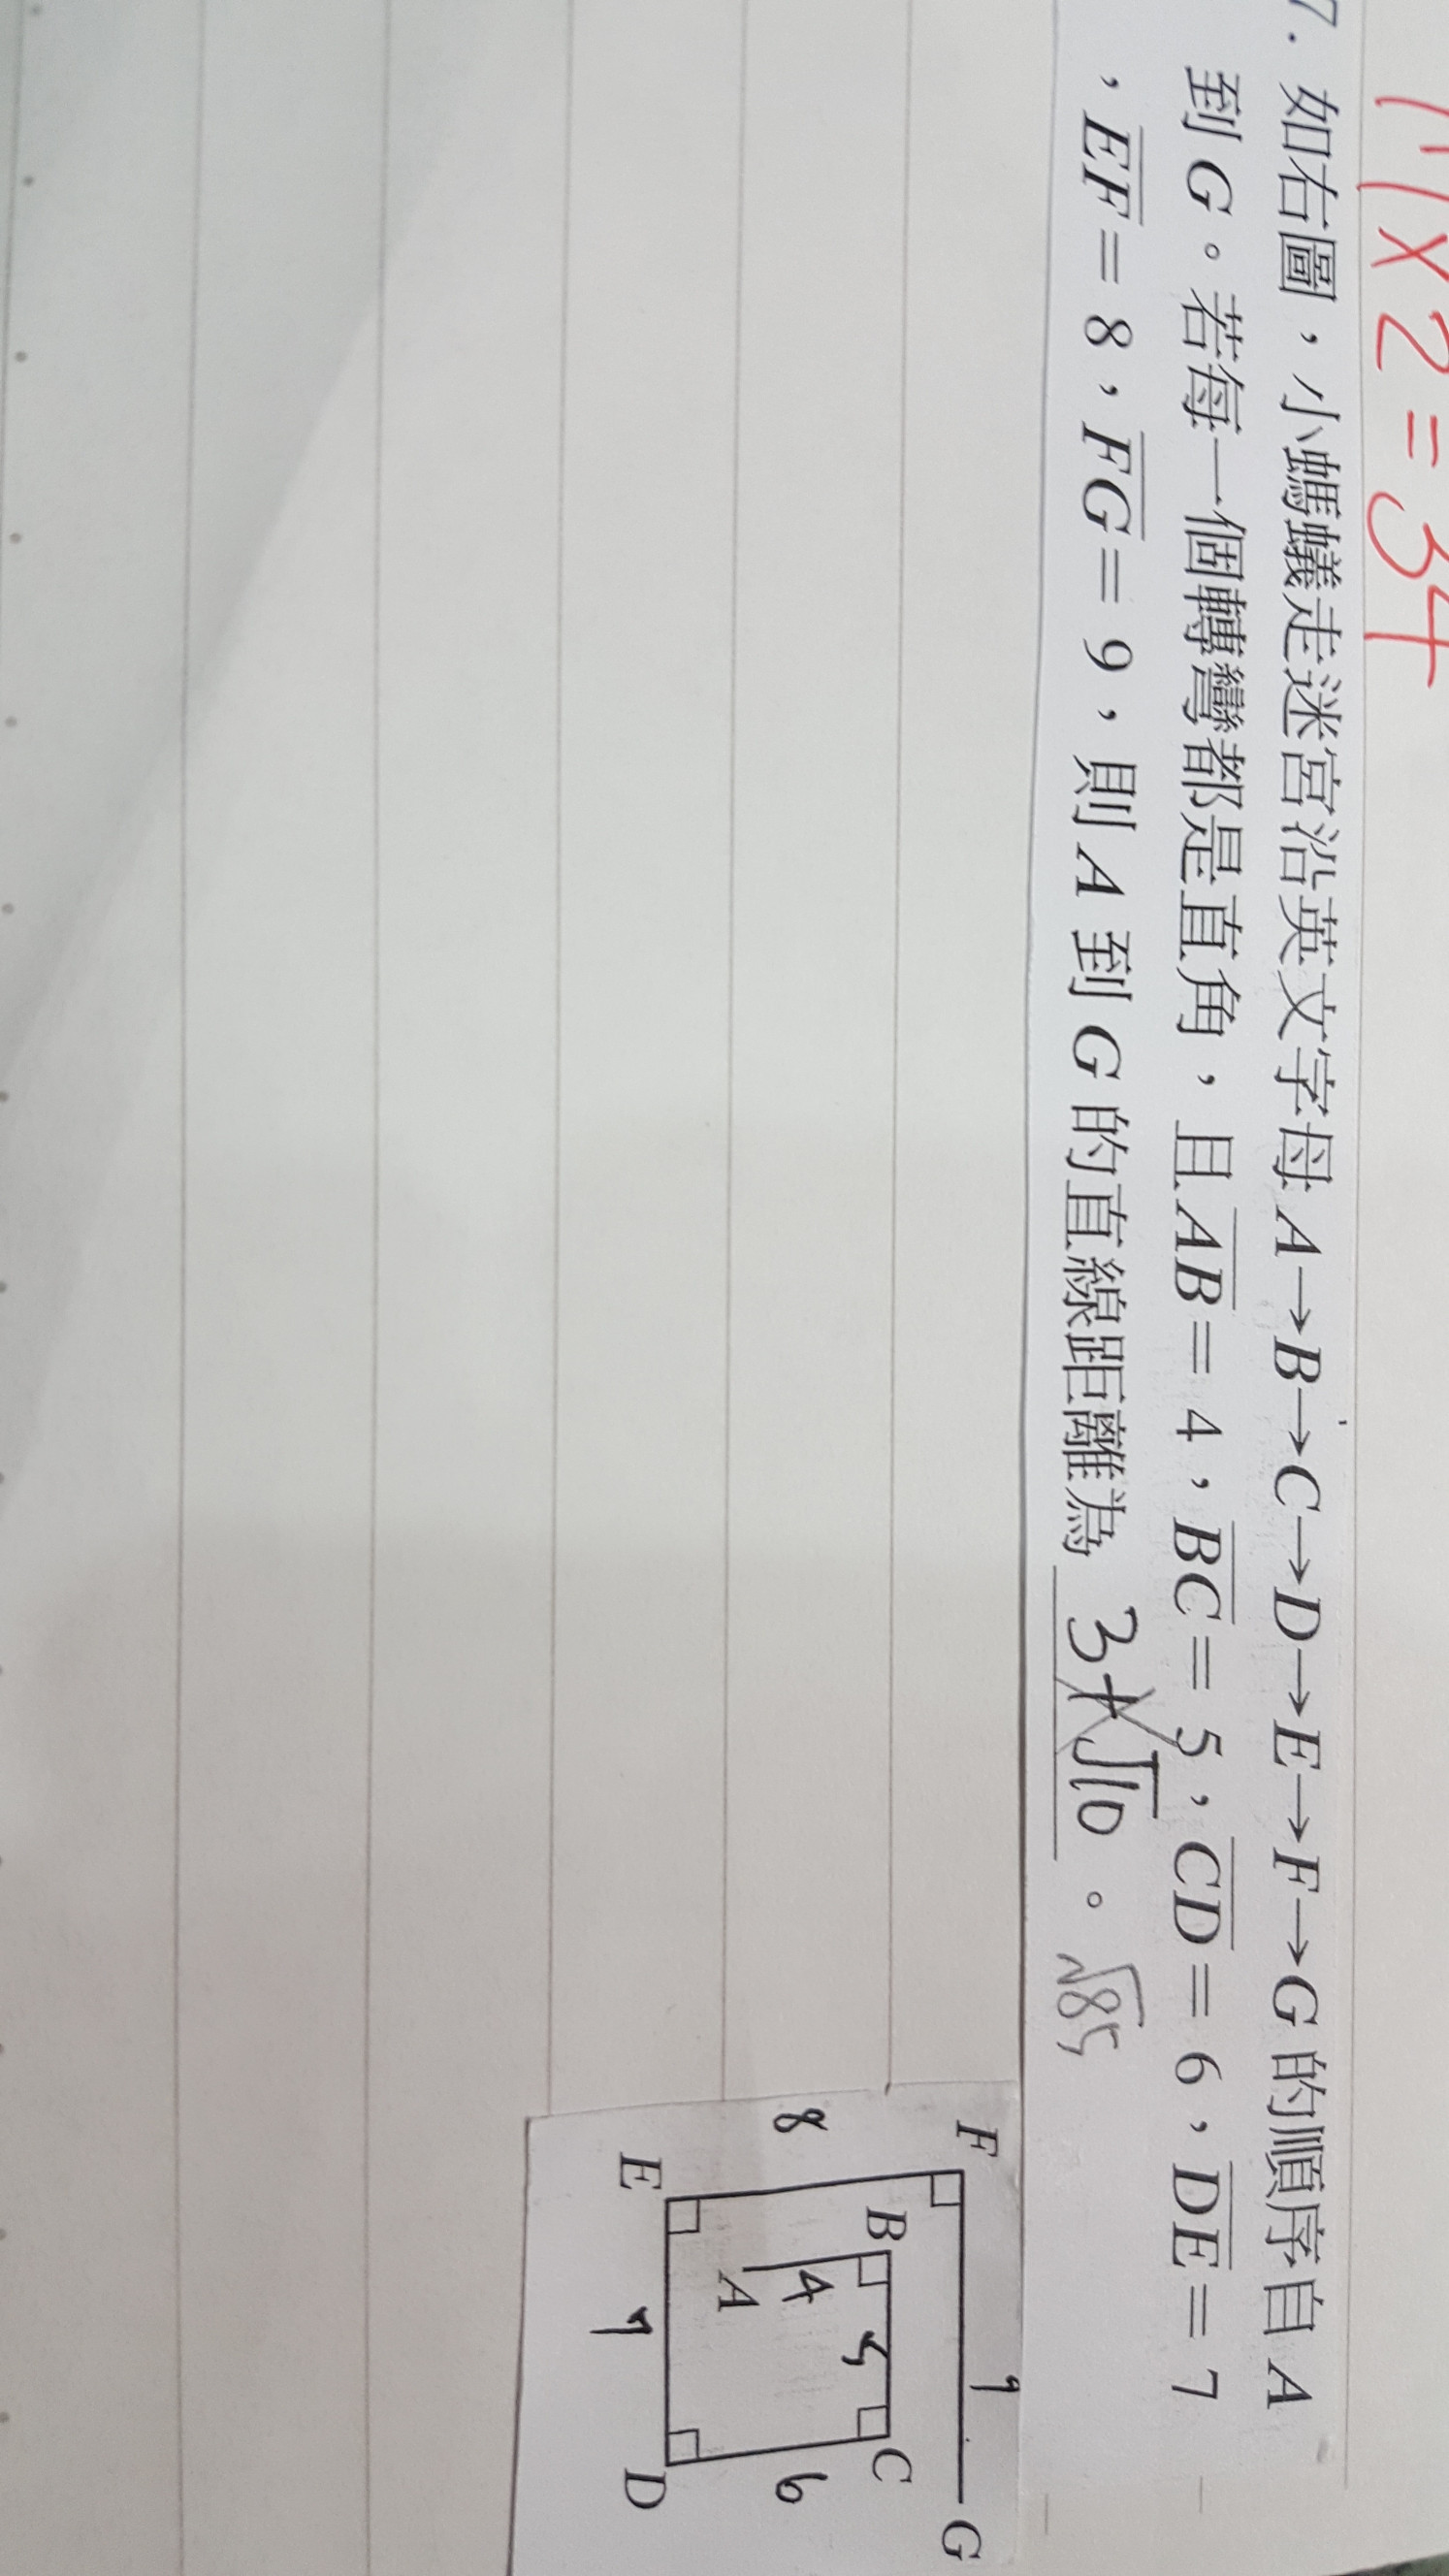 17×2=34
7. 如右圖，小螞蟻走迷宮沿英文字母 A→B→C→D→E→F→G 的順序自 A
到 G。若每一個轉彎都是直角，且 AB = 4，BC = 5，CD = 6，DE = 7
，EF = 8，FG = 9，則 A 到 G 的直線距離為 3+√10。√85
F 9 G
B 5 C
8 4 6
A
E 7 D